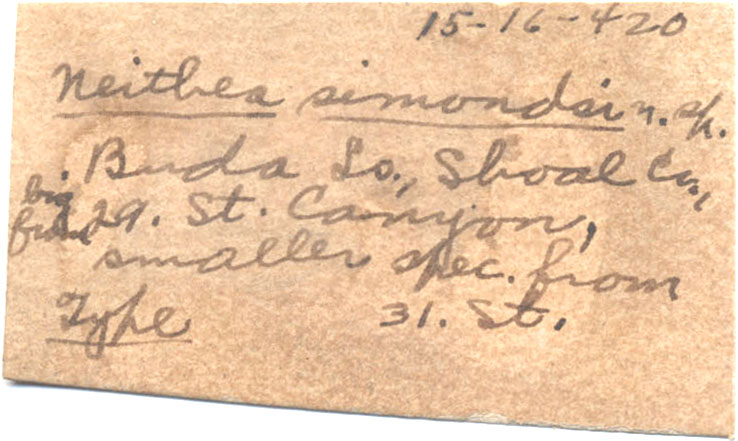 15-16-420
Neithea simondsi n. sp.
Buda Ls., Shoal Cr.,
big from 29. St. Canyon,
smaller spec. from
Type 31. St.